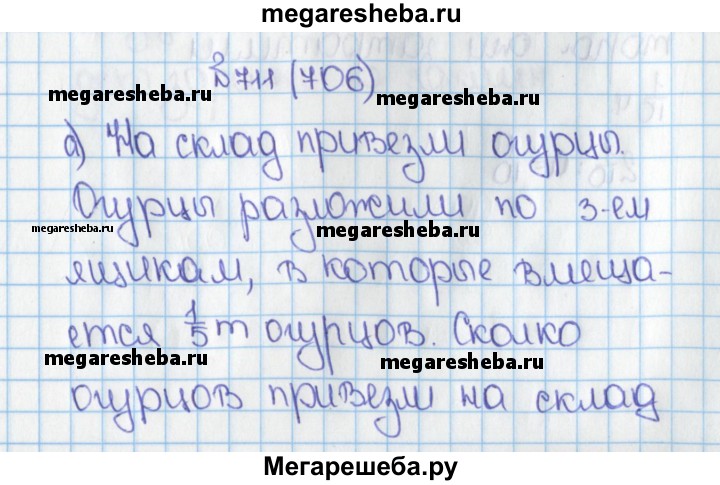 megaresheba.ru
№711 (706)
megaresheba.ru megaresheba.ru
а) На склад привезли огурцы.
Огурцы разложили по 3-ем
megaresheba.ru megaresheba.ru
ящикам, в которые вмеща-
ется 1/5 т огурцов. Сколко
megaresheba.ru megaresheba.ru
огурцов привезли на склад
Мегарешеба.ру